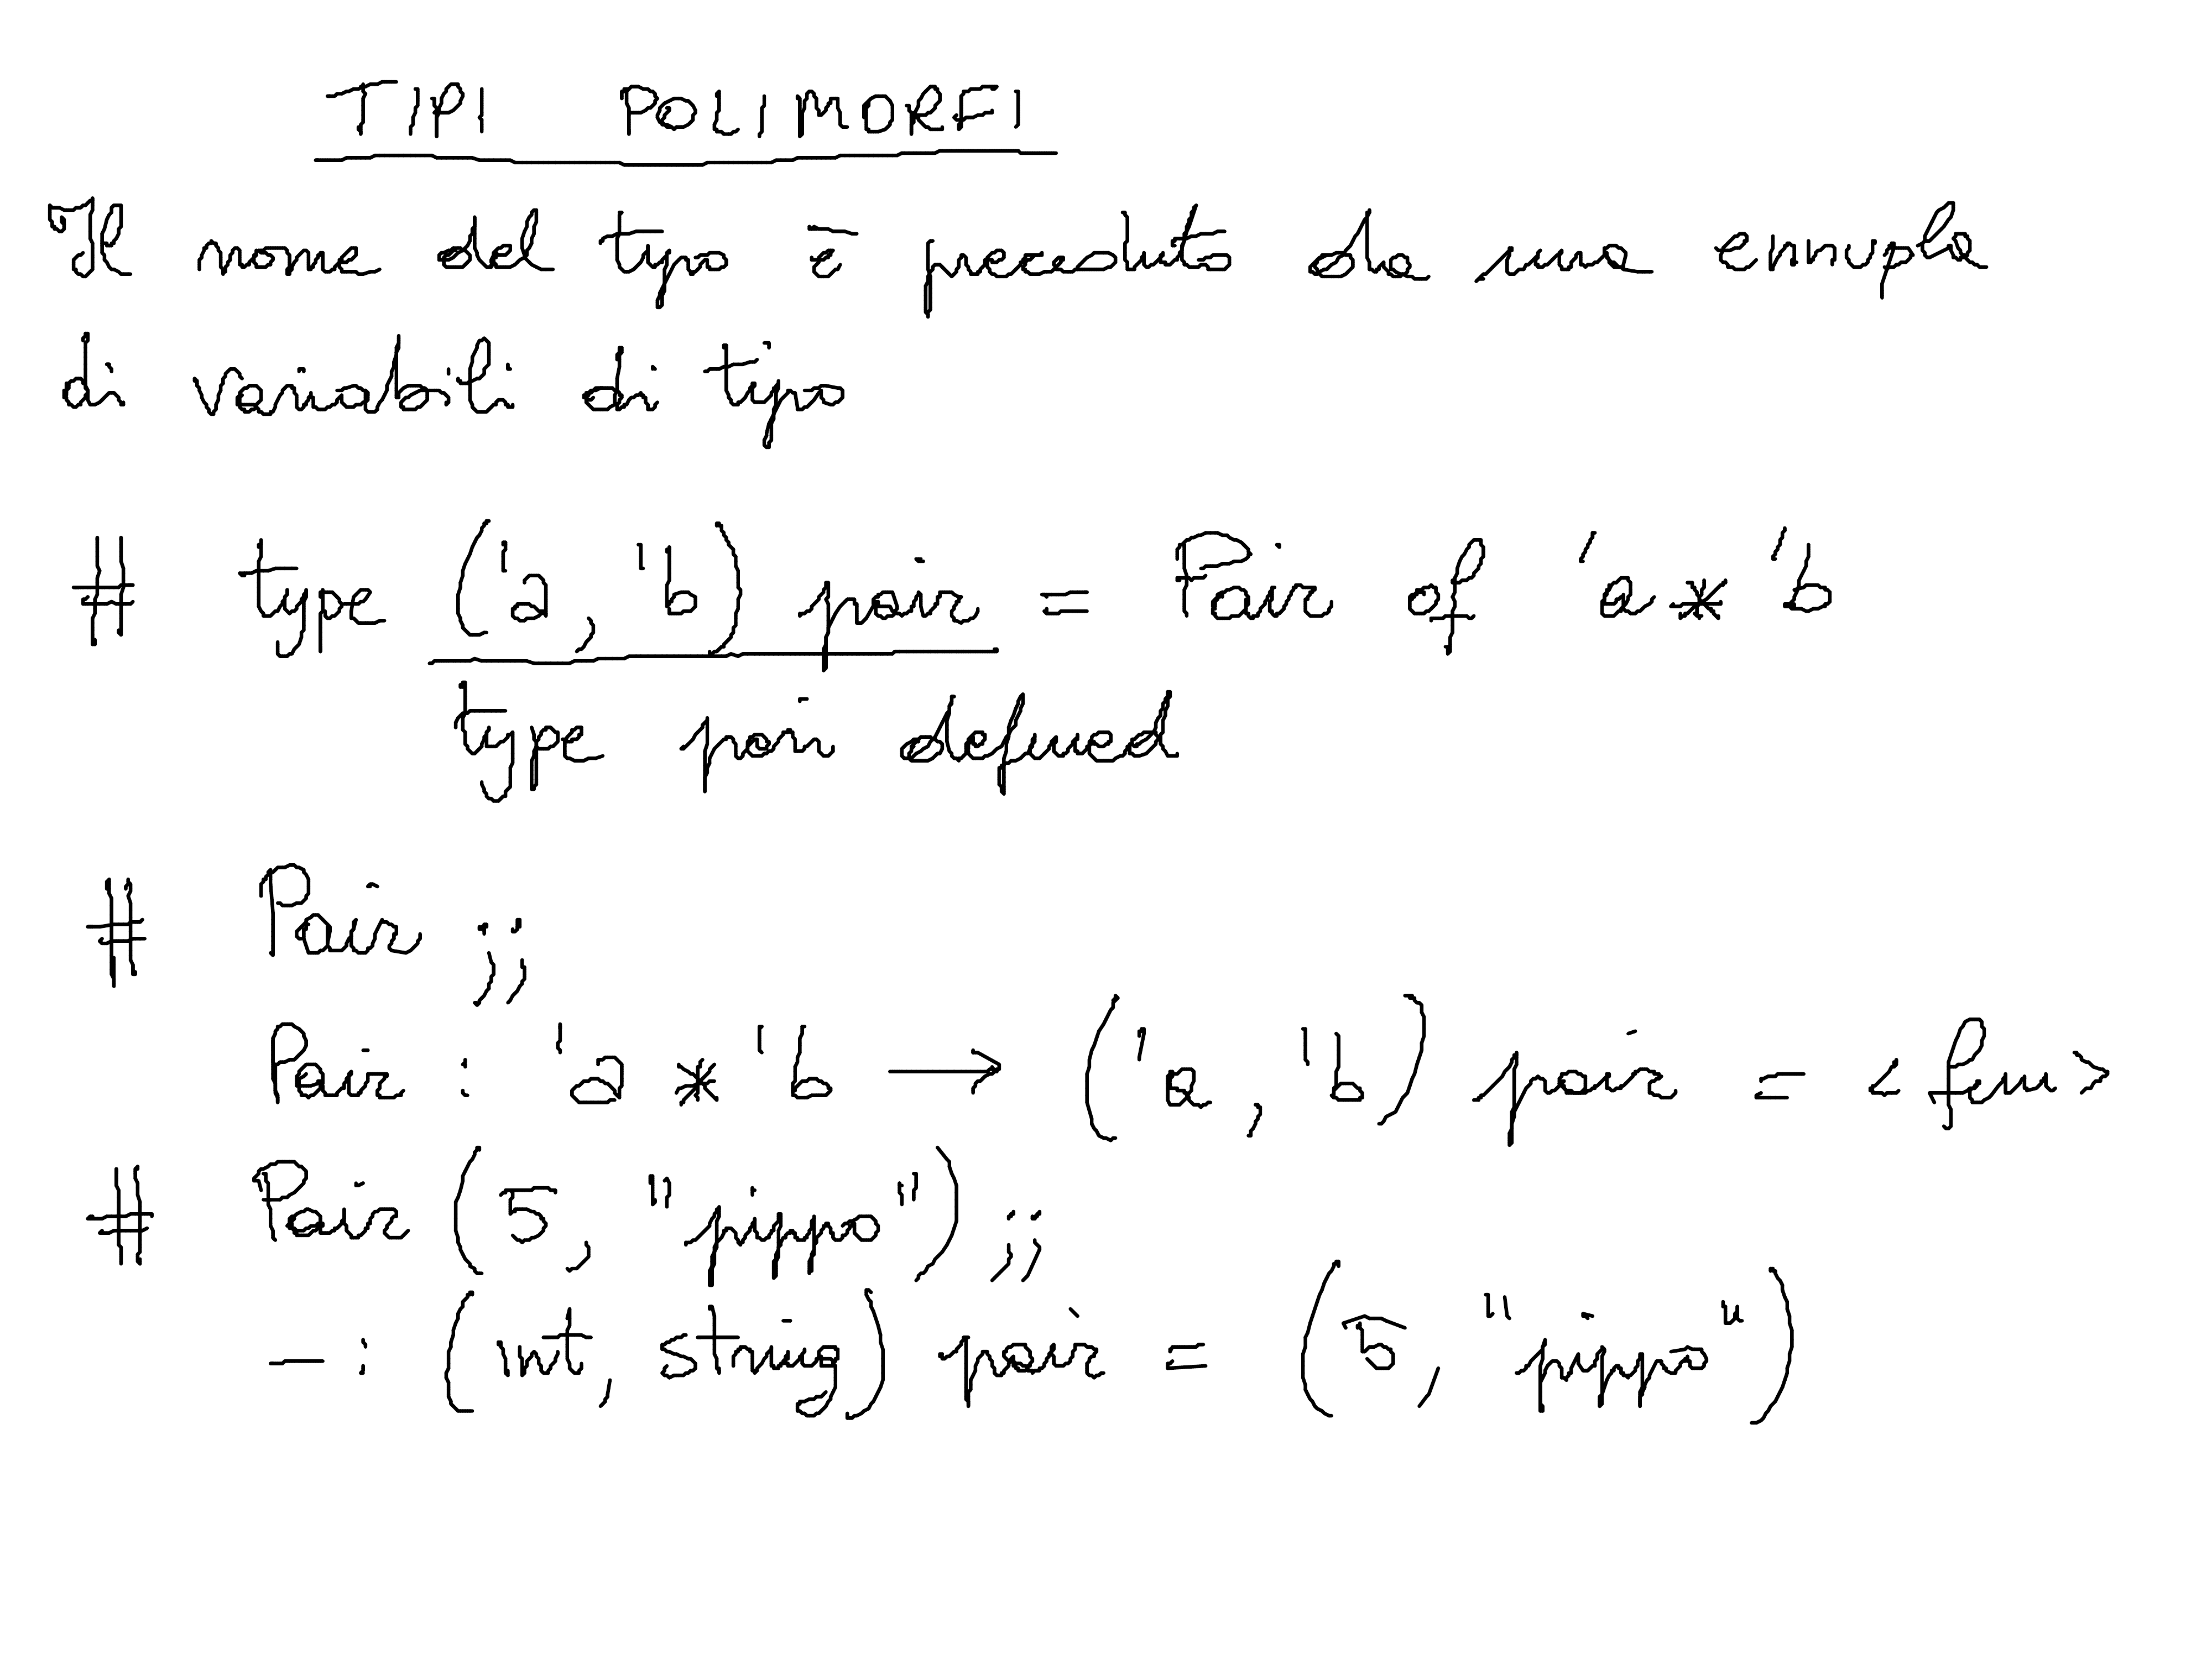 TIPI POLIMORFI
Il nome del tipo è preceduto da una ennupla
di variabili di tipo
# type ('a, 'b) pair = Pair of 'a * 'b
type pair defined
# Pair ;;
Pair : 'a * 'b → ('a, 'b) pair = <fun>
# Pair (5, "pippo") ;;
- : (int, string) pair = (5, "pippo")